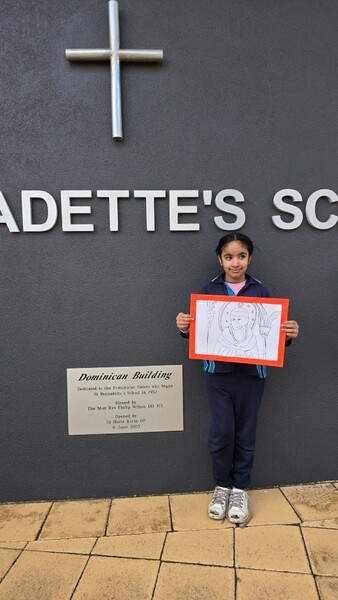 ADETTE'S SC
Dominican Building
Dedicated to the Dominican Sisters who began
St Bernadette's School in 1952
Blessed by
The Most Rev Philip Wilson DD JCL
Opened by
Sr Marie Rorie OP